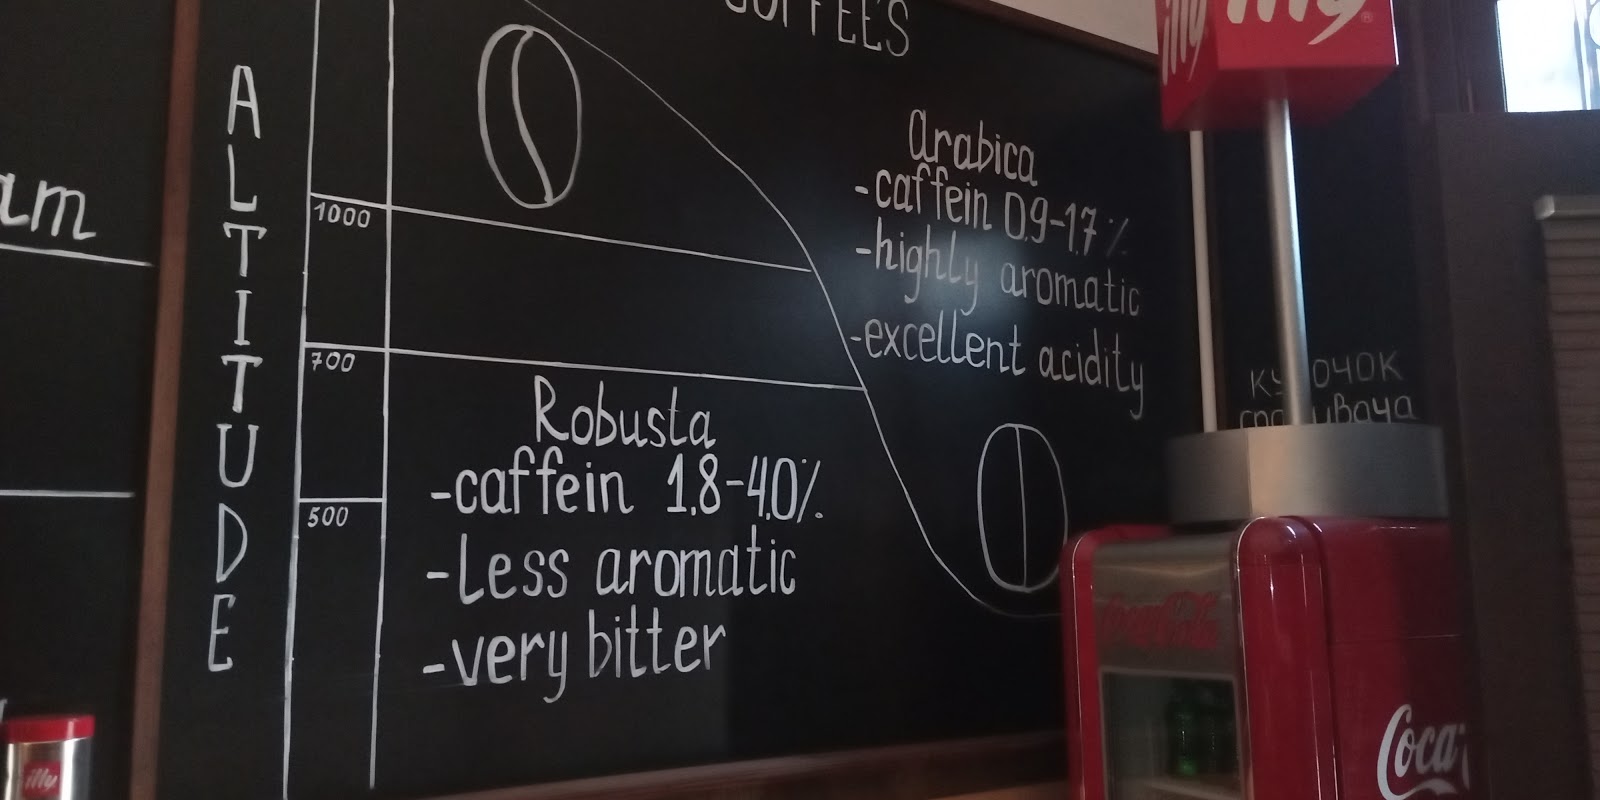 COFFEE'S
illy
illy
ALTITUDE
1000
700
500
Arabica
-caffein 0.9-1.7%
-highly aromatic
-excellent acidity
Robusta
-caffein 1.8-4.0%
-Less aromatic
-very bitter
Coca-Cola
Coca
illy